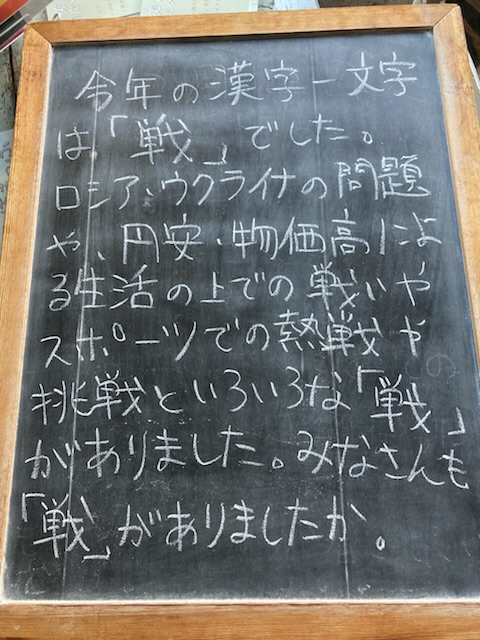 今年の漢字一文字
は「戦」でした。
ロシア、ウクライナの問題
や、円安・物価高によ
る生活の上での戦いや
スポーツでの熱戦や
挑戦といろいろな「戦」
がありました。みなさんも
「戦」がありましたか。